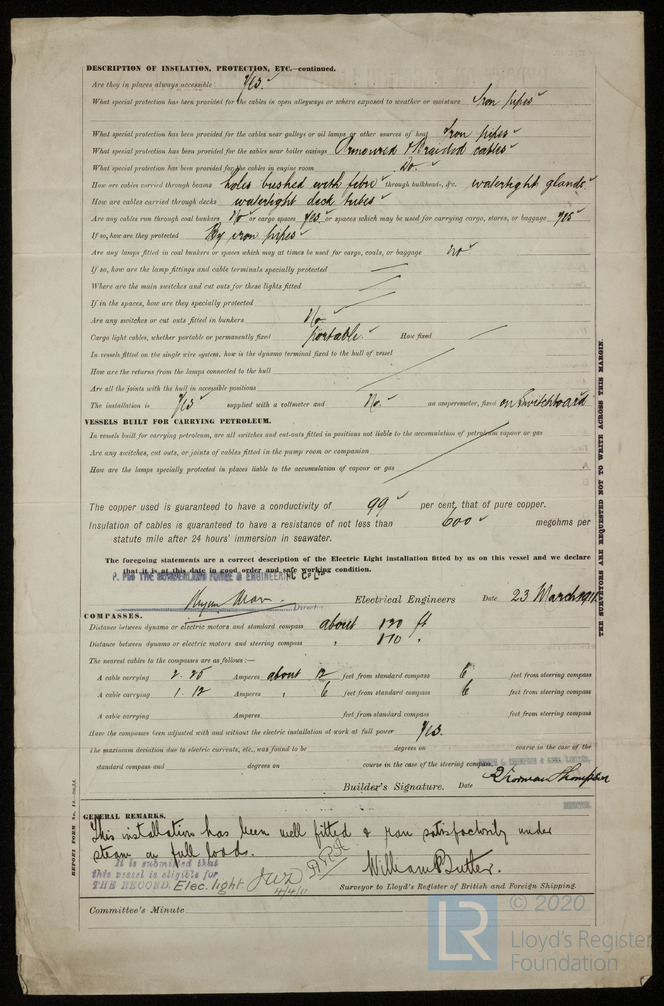 DESCRIPTION OF INSULATION, PROTECTION, ETC.—continued.
Are they in places always accessible Yes
What special protection has been provided for the cables in open alleyways or where exposed to weather or moisture Iron pipes
What special protection has been provided for the cables near galleys or oil lamps or other sources of heat Iron pipes
What special protection has been provided for the cables near boiler casings Armoured & Braided cables
What special protection has been provided for the cables in engine room Do.
How are cables carried through beams holes bushed with fibre through bulkheads, &c. watertight glands
How are cables carried through decks watertight deck tubes
Are any cables run through coal bunkers No or cargo spaces yes or spaces which may be used for carrying cargo, stores, or baggage yes
If so, how are they protected By iron pipes
Are any lamps fitted in coal bunkers or spaces which may at times be used for cargo, coals, or baggage no
If so, how are the lamp fittings and cable terminals specially protected
Where are the main switches and cut outs for these lights fitted
If in the spaces, how are they specially protected
Are any switches or cut outs fitted in bunkers No
Cargo light cables, whether portable or permanently fixed portable How fixed
In vessels fitted on the single wire system, how is the dynamo terminal fixed to the hull of vessel
How are the returns from the lamps connected to the hull
Are all the joints with the hull in accessible positions
The installation is Yes supplied with a voltmeter and No. an amperemeter, fixed on Switchboard
VESSELS BUILT FOR CARRYING PETROLEUM.
In vessels built for carrying petroleum, are all switches and cut-outs fitted in positions not liable to the accumulation of petroleum vapour or gas
Are any switches, cut outs, or joints of cables fitted in the pump room or companion
How are the lamps specially protected in places liable to the accumulation of vapour or gas
The copper used is guaranteed to have a conductivity of 99 per cent. that of pure copper.
Insulation of cables is guaranteed to have a resistance of not less than 600 megohms per
statute mile after 24 hours' immersion in seawater.
The foregoing statements are a correct description of the Electric Light installation fitted by us on this vessel and we declare
that it is at this date in good order and safe working condition.
P. PRO THE SUNDERLAND FORGE & ENGINEERING Co Ltd
Director Electrical Engineers Date 23 March 1911
COMPASSES.
Distance between dynamo or electric motors and standard compass about 120 ft
Distance between dynamo or electric motors and steering compass " 110 "
The nearest cables to the compasses are as follows:—
A cable carrying 2.25 Amperes about 12 feet from standard compass 6 feet from steering compass
A cable carrying 1.12 Amperes " 6 feet from standard compass 6 feet from steering compass
A cable carrying Amperes feet from standard compass feet from steering compass
Have the compasses been adjusted with and without the electric installation at work at full power Yes.
The maximum deviation due to electric currents, etc., was found to be degrees on course in the case of the
standard compass and degrees on course in the case of the steering compass.
THOMPSON & SONS, LIMITED,
Builder's Signature. Date Norman Thompson
DIRECTOR.
GENERAL REMARKS.
This installation has been well fitted & ran satisfactorily under
steam on full loads.
It is submitted that
this vessel is eligible for
THE RECORD. Elec. light. JWD 4/4/11
William Butler.
Surveyor to Lloyd's Register of British and Foreign Shipping.
Committee's Minute
THE SURVEYORS ARE REQUESTED NOT TO WRITE ACROSS THIS MARGIN.
© 2020
LR
Lloyd's Register
Foundation